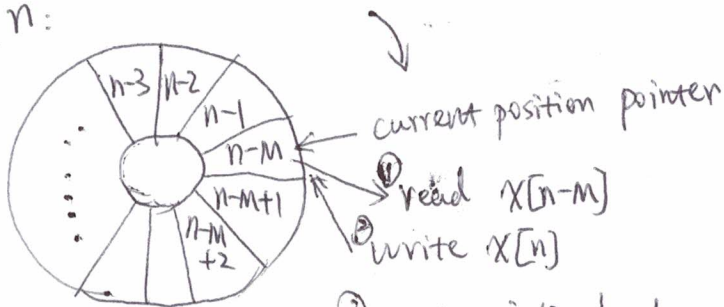 n:
n-3 n-2
n-1
n-M
n-M+1
n-M
+2
current position pointer
① read x[n-M]
② write x[n]